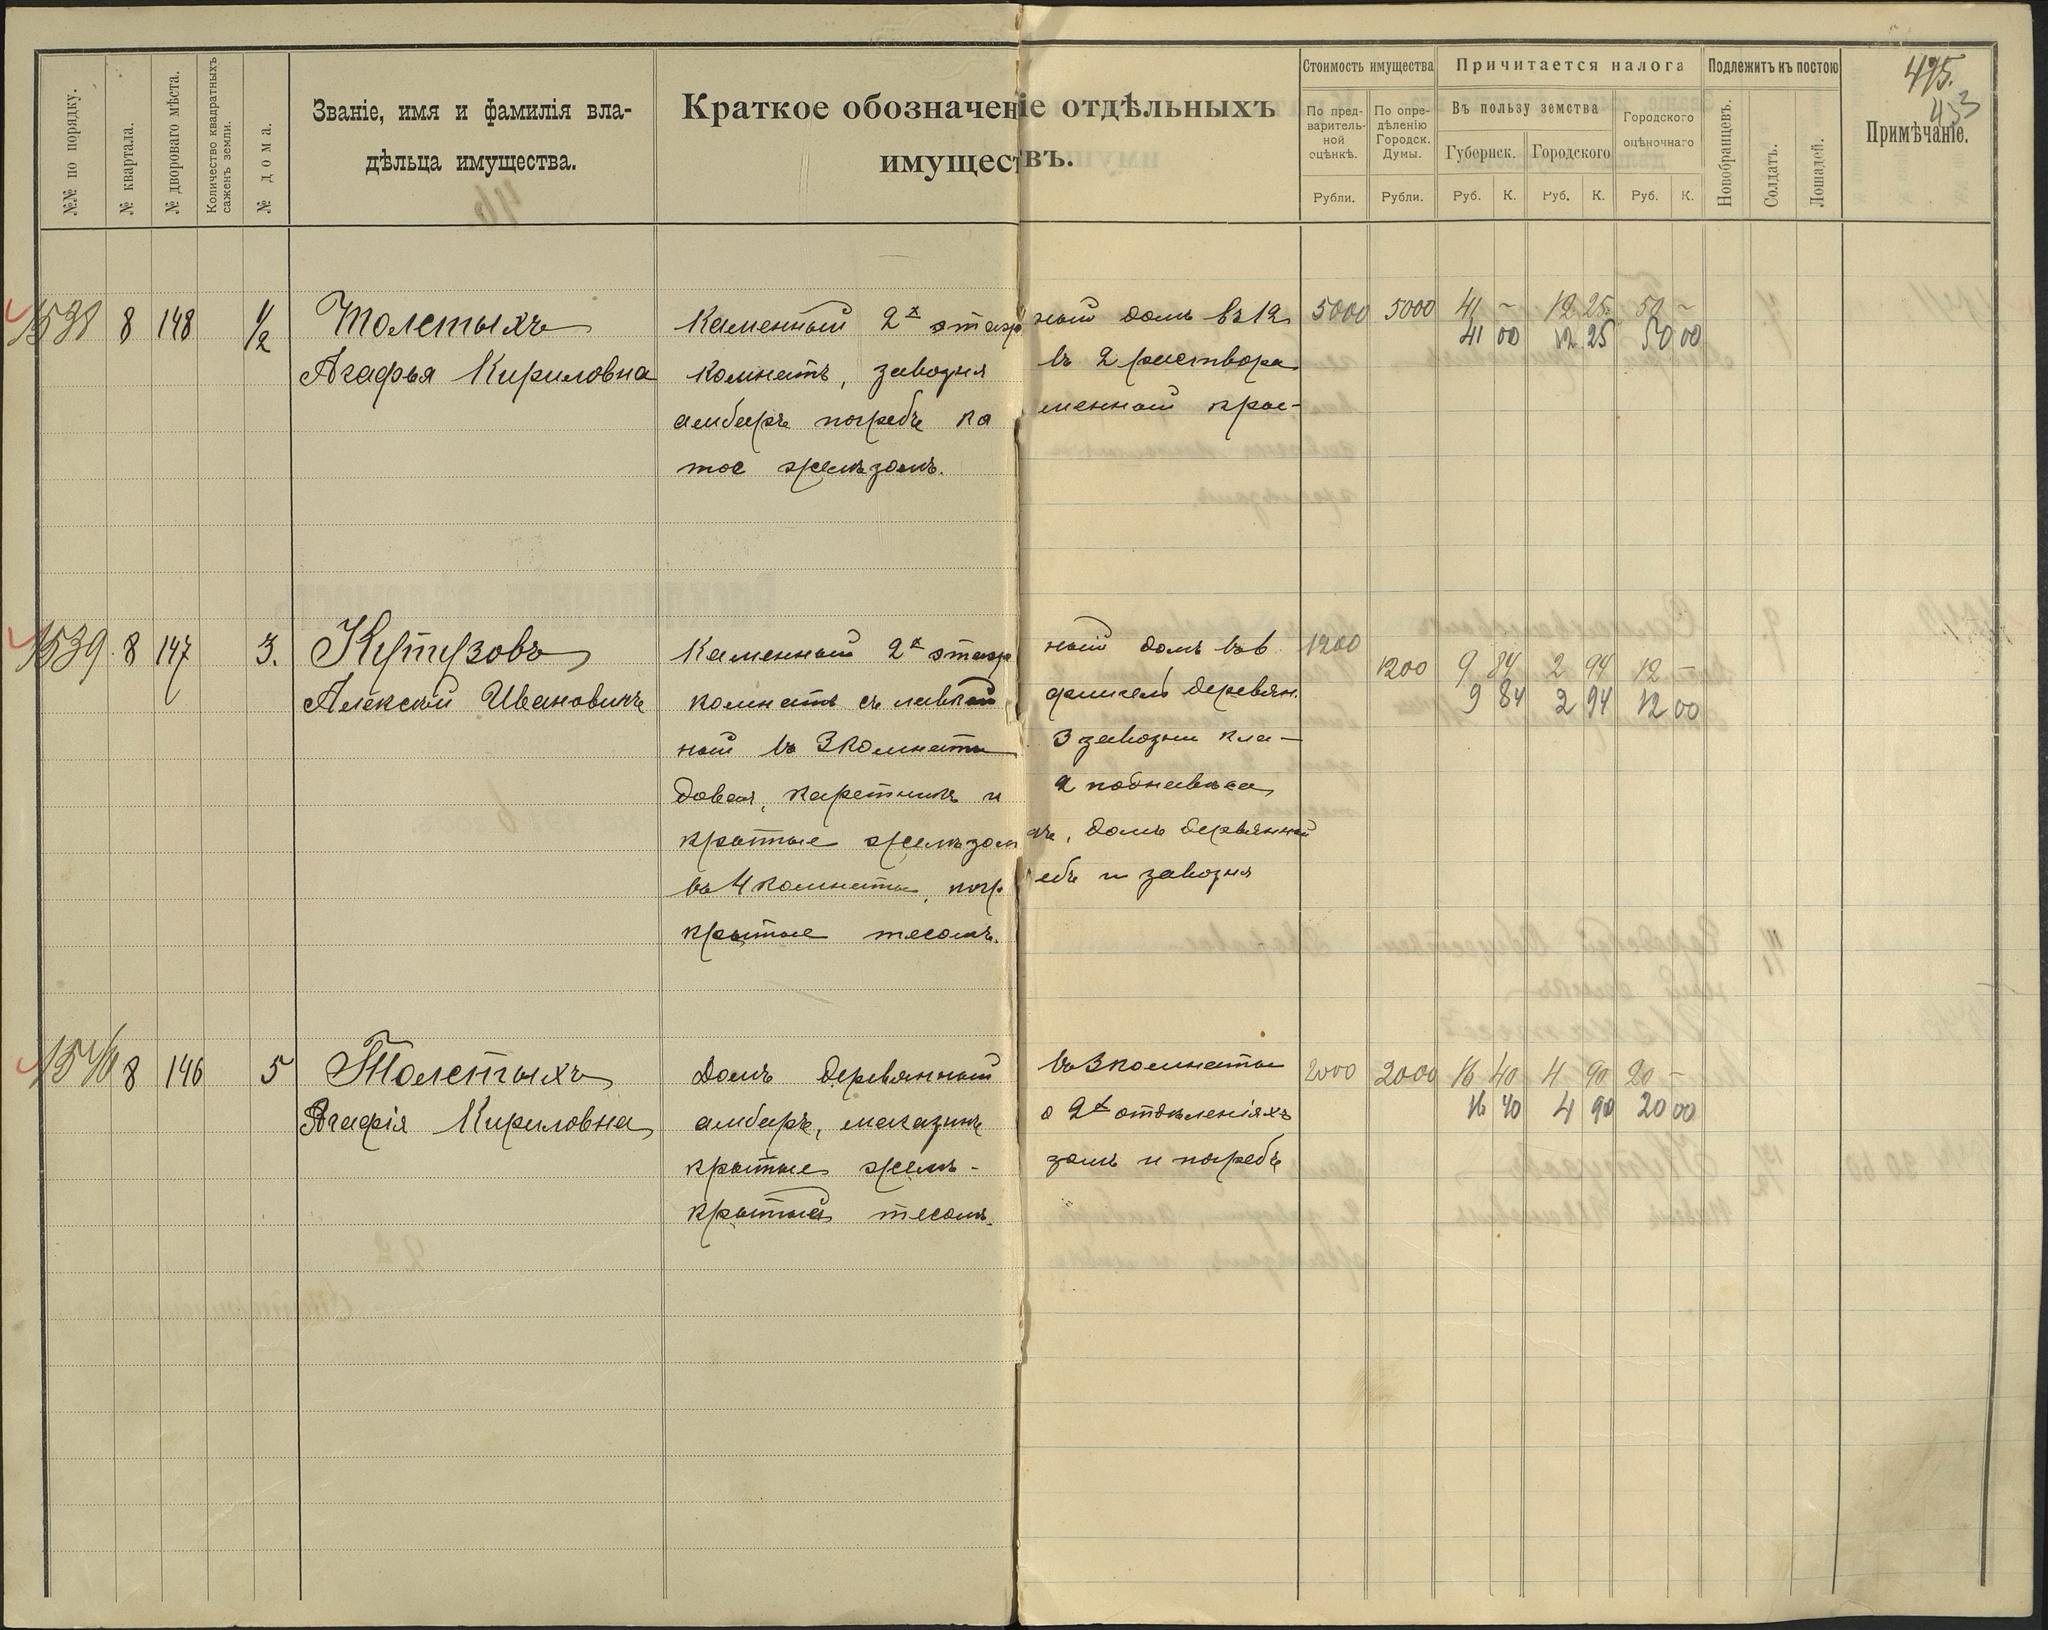 495.
453
№№ по порядку.
№ квартала.
№ двороваго мѣста.
Количество квадратныхъ саженъ земли.
№ дома.
Званіе, имя и фамилія вла-
дѣльца имущества.
Краткое обозначеніе отдѣльныхъ
имуществъ.
Стоимость имущества
По пред-
варитель-
ной
оцѣнкѣ.
Рубли.
По опре-
дѣленію
Городск.
Думы.
Рубли.
Причитается налога
Въ пользу земства
Губернск.
Руб. К.
Городского
Руб. К.
Городского
оцѣночнаго
Руб. К.
Подлежитъ къ постою
Новобранцевъ.
Солдатъ.
Лошадей.
Примѣчаніе.
1538 8 148 1/2 Толстыхъ Каменный 2х этажный домъ въ 12 5000 5000 41 – 12 25 50 –
41 00 12 25 50 00
Агафья Кириловна комнатъ, завозня въ 2 раствора
амбаръ погребъ каменный кры-
тое желѣзомъ.
1539 8 147 3. Кутузовъ Каменный 2х этажный домъ въ 6 1200
1200 9 84 2 94 12 –
Алексѣй Ивановичъ комнатъ съ лавкой флигель деревян. 9 84 2 94 12 00
ный въ 3 комнаты 3 завозни кла-
довая, каретникъ и 2 поднавѣса
крытые желѣзомъ, домъ деревянный
въ 4 комнаты, погребъ и завозня
крытые тесомъ.
1540 8 146 5 Толстыхъ Домъ деревянный въ 3 комнаты 2000 2000 16 40 4 90 20 –
Агафія Кириловна амбаръ, магазинъ о 2х отдѣленіяхъ 16 40 4 90 20 00
крытые желѣ- зомъ и погребъ
крытый тесомъ.